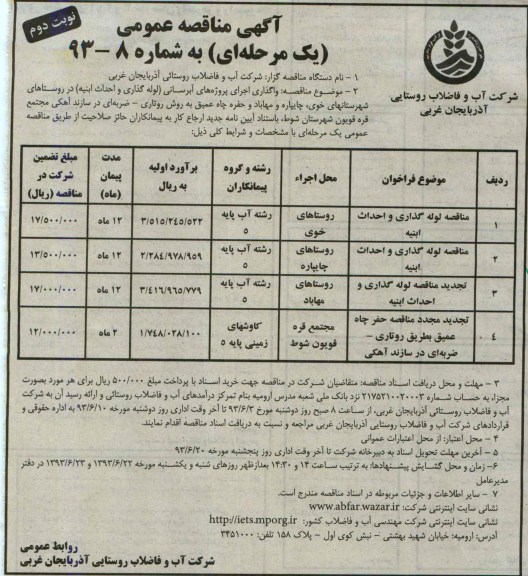 نوبت دوم
آگهی مناقصه عمومی
(یک مرحله‌ای) به شماره ۸ – ۹۳
شرکت آب و فاضلاب روستایی
آذربایجان غربی
۱ – نام دستگاه مناقصه گزار: شرکت آب و فاضلاب روستائی آذربایجان غربی
۲ – موضوع مناقصه: واگذاری اجرای پروژه‌های آبرسانی (لوله گذاری و احداث ابنیه) در روستاهای
شهرستانهای خوی، چایپاره و مهاباد و حفره چاه عمیق به روش روتاری – ضربه‌ای در سازند آهکی مجتمع
قره قویون شهرستان شوط، باستناد آیین نامه جدید ارجاع کار به پیمانکاران حائز صلاحیت از طریق مناقصه
عمومی یک مرحله‌ای با مشخصات و شرایط کلی ذیل:
ردیف | موضوع فراخوان | محل اجراء | رشته و گروه پیمانکاران | برآورد اولیه به ریال | مدت پیمان (ماه) | مبلغ تضمین شرکت در مناقصه (ریال)
۱ | مناقصه لوله گذاری و احداث ابنیه | روستاهای خوی | رشته آب پایه ۵ | ۳/۵۱۵/۲٤۵/۵۲۲ | ۱۲ ماه | ۱۷/۵۰۰/۰۰۰
۲ | مناقصه لوله گذاری و احداث ابنیه | روستاهای چایپاره | رشته آب پایه ۵ | ۲/۲۸٤/۹۷۸/۹۵۹ | ۱۲ ماه | ۱۳/۵۰۰/۰۰۰
۳ | تجدید مناقصه لوله گذاری و احداث ابنیه | روستاهای مهاباد | رشته آب پایه ۵ | ۳/٤۱٦/۹٦۵/۷۷۹ | ۱۲ ماه | ۱۷/۰۰۰/۰۰۰
٤ | تجدید مجدد مناقصه حفر چاه عمیق بطریق روتاری – ضربه‌ای در سازند آهکی | مجتمع قره قویون شوط | کاوشهای زمینی پایه ۵ | ۱/۷٤۸/۰۳۸/۱۰۰ | ۲ ماه | ۱۲/۰۰۰/۰۰۰
۳ – مهلت و محل دریافت اسناد مناقصه: متقاضیان شرکت در مناقصه جهت خرید اسناد با پرداخت مبلغ ۵۰۰/۰۰۰ ریال برای هر مورد بصورت
مجزاء به حساب شماره ۲۱۷۵۲۱۰۰۲۰۰۰۳ نزد بانک ملی شعبه مدرس ارومیه بنام تمرکز درآمدهای آب و فاضلاب روستائی و ارائه رسید آن به شرکت
آب و فاضلاب روستائی آذربایجان غربی، از ساعت ۸ صبح روز دوشنبه مورخ ۹۳/۶/۳ تا آخر وقت اداری روز دوشنبه مورخه ۹۳/۶/۱۰ به اداره حقوقی و
قراردادهای شرکت آب و فاضلاب روستایی آذربایجان غربی مراجعه و نسبت به دریافت اسناد مناقصه اقدام نمایند.
۴ – محل اعتبار: از محل اعتبارات عمرانی
۵ – آخرین مهلت تحویل اسناد به دبیرخانه شرکت تا آخر وقت اداری روز پنجشنبه مورخه ۹۳/۶/۲۰
۶– زمان و محل گشایش پیشنهادها: به ترتیب ساعت ۱۴ و ۱۴:۳۰ بعدازظهر روزهای شنبه و یکشنبه مورخه ۱۳۹۳/۶/۲۲ و ۱۳۹۳/۶/۲۳ در دفتر
مدیرعامل
۷ – سایر اطلاعات و جزئیات مربوطه در اسناد مناقصه مندرج است.
نشانی سایت اینترنتی شرکت: www.abfar.wazar.ir
نشانی سایت اینترنتی شرکت مهندسی آب و فاضلاب کشور: http://iets.mporg.ir
آدرس: ارومیه: خیابان شهید بهشتی – نبش کوی اول – پلاک ۱۵۸ تلفن: ۳۴۵۱۰۰۰
روابط عمومی
شرکت آب و فاضلاب روستایی آذربایجان غربی